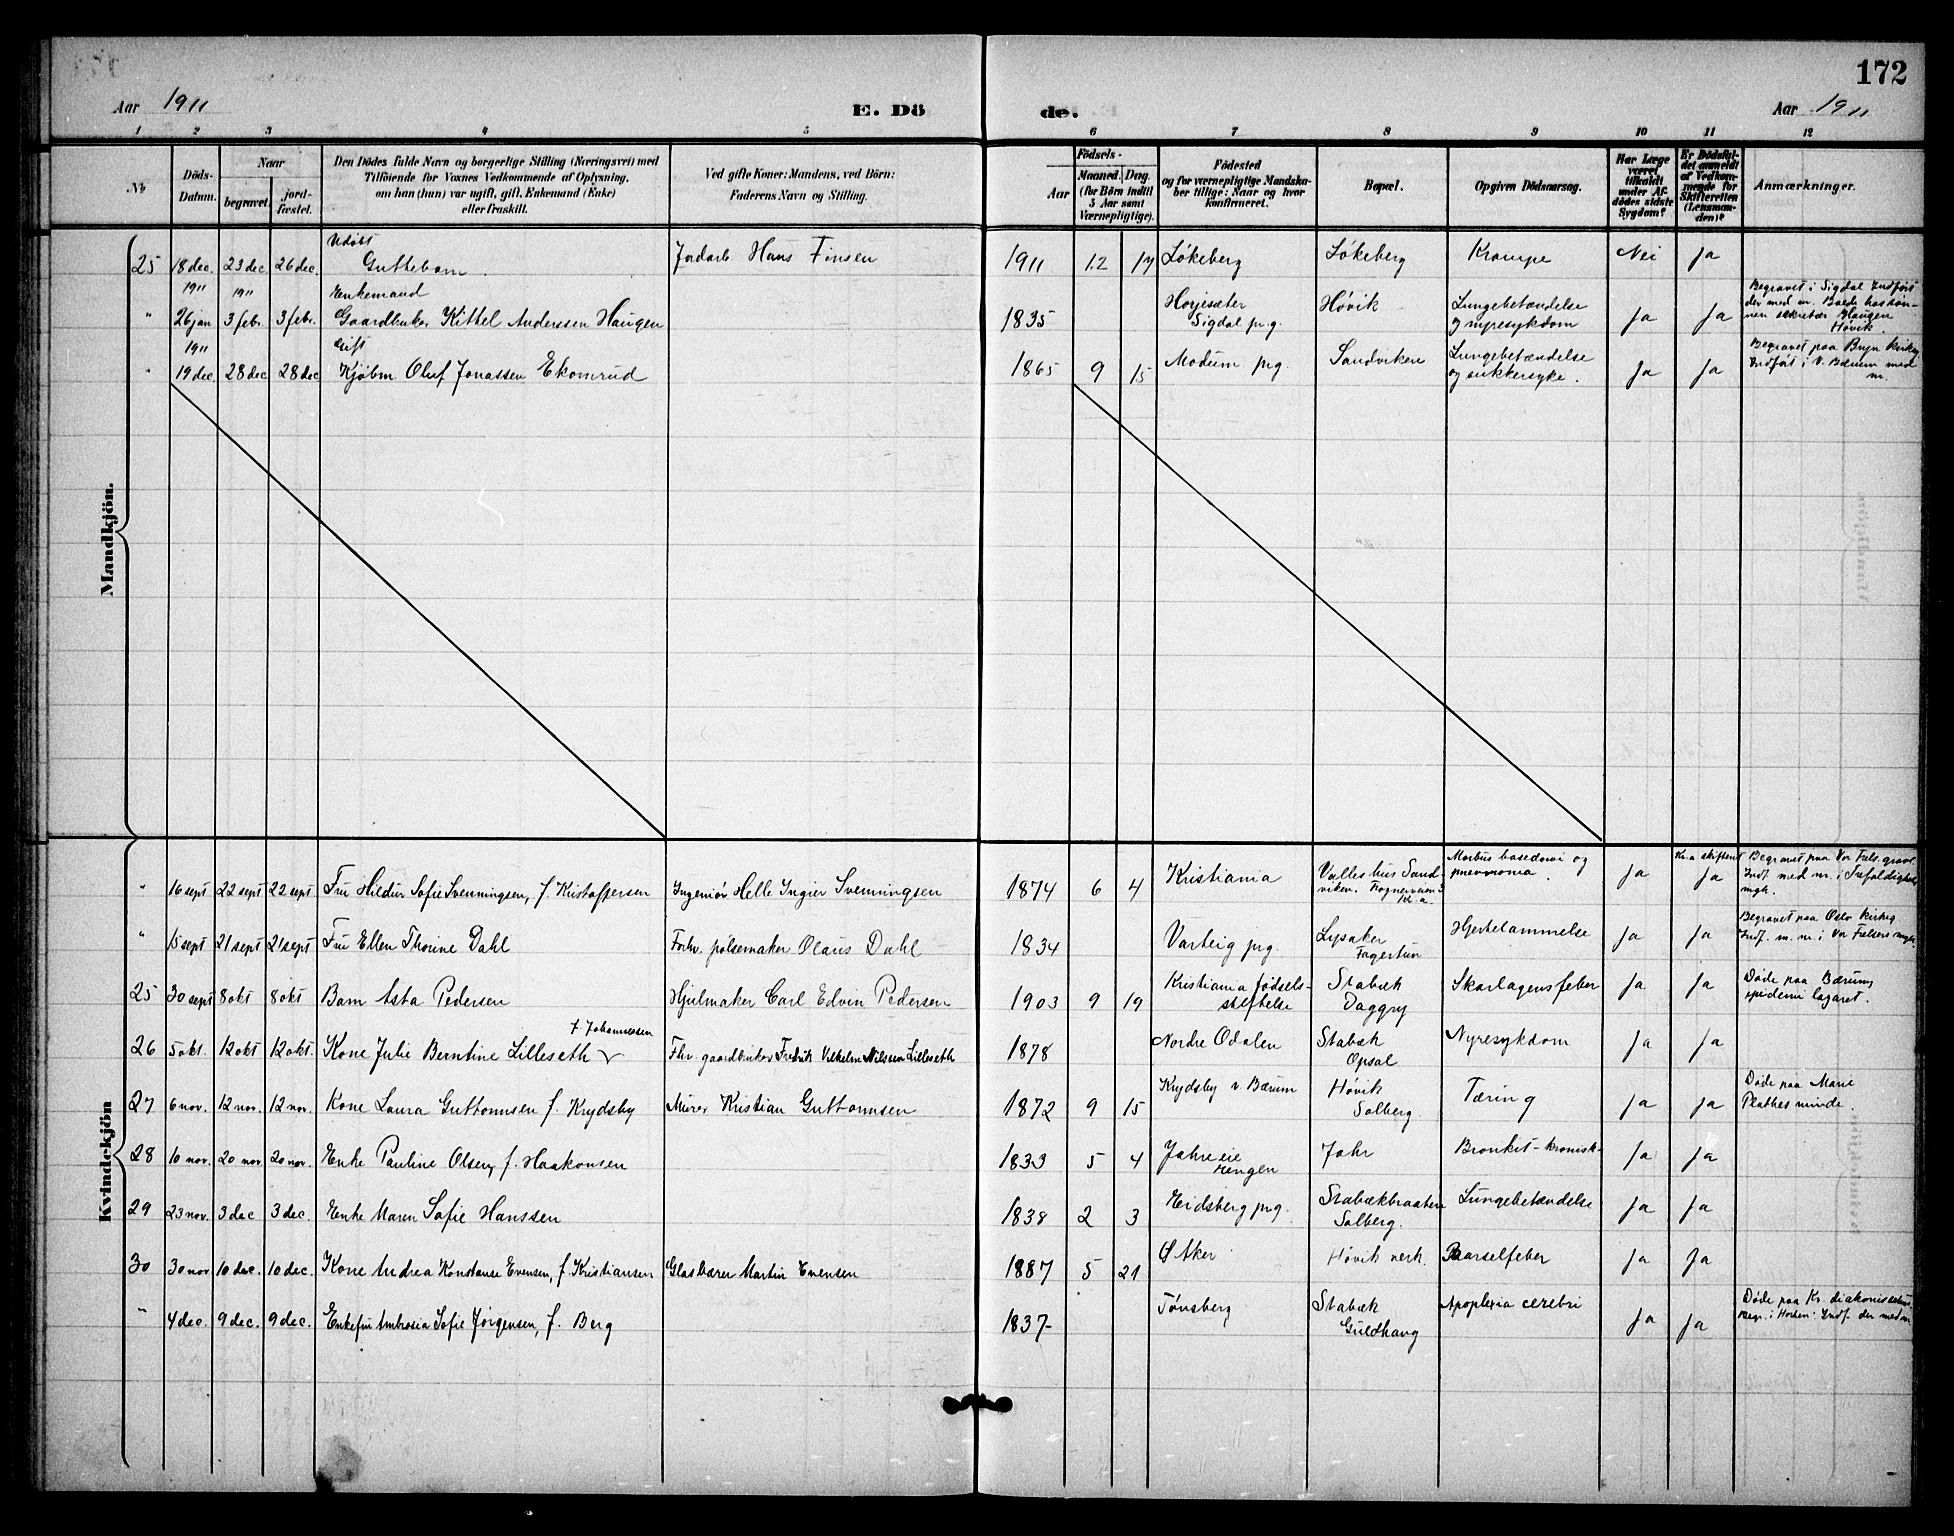 172
Aar 1911 E. Dö de. Aar 1911
1 2 3 4 5 6 7 8 9 10 11 12
No
Döds-
Datum.
Naar
begravet.
jord-
fæstet.
Den Dödes fulde Navn og borgerlige Stilling (Næringsvei) med
Tilföiende for Voxnes Vedkommende af Oplysning,
om han (hun) var ugift, gift, Enkemand (Enke)
eller fraskilt.
Ved gifte Koner: Mandens, ved Börn:
Faderens Navn og Stilling.
Födsels-
Aar
Maaned. Dag.
(for Börn indtil
5 Aar samt
Værnepligtige).
Födested
og for værnepligtige Mandska-
ber tillige: Naar og hvor
konfirmeret.
Bopæl.
Opgiven Dödsaarsag.
Har Læge
været
tilkaldt
under Af-
dödes sidste
Sygdom?
Er Dödsfal-
det anmeldt
af Vedkom-
mende for
Skifteretten
(Lensman-
den)?
Anmærkninger.
Mandkjön.
Udøbt
25 18 dec. 23 dec 26 dec. Guttebarn. Jordarb Hans Finsen 1911 12 17 Løkeberg Løkeberg Krampe Nei Ja
1911 1911 Enkemand
" 26 jan 3 febr. 3 febr. Gaardbruker Kittel Anderssen Haugen 1835 Høvik Lungebetændelse
Sigdal prg. og nyresykdom Ja Ja
Begravet i Sigdal Indført
der med nr. Boede hos søn-
nen sekretær Haugen
Høvik.
1911 Gift
" 19 dec. 28 dec 28 dec Kjøbm. Oluf Jonassen Ekornrud 1865 9 15 Modum prg. Sandviken Lungebetændelse
og sukkersyke. Ja Ja
Begravet paa Bryn kirkeg
Indført i V. Bærum med
nr.
Kvindekjön
" 16 sept 22 sept 22 sept Fru Hildur Sofie Svenningsen, f. Kristoffersen Ingeniør Helle Ingier Svenningsen 1874 6 4 Kristiania Valleshus Sand-
viken. Kr.a.
Morbus basedowi og
pneumonia. Ja Kr.a skifteret
Ja
Begravet paa Vor Frels. gravl.
Indf. med nr. i Trefoldighed
mgh.
" 15 sept 21 sept 21 sept Fru Ellen Thorine Dahl Forhv. pølsemaker Olaus Dahl 1834 Varteig prg. Lysaker
Fagertun Hjertelammelse Ja Ja
Begravet paa Oslo kirkeg
Indf. m. nr. i Vor Frelsers mgh.
25 30 sept 8 okt 8 okt Barn Asta Pedersen Hjulmaker Carl Edvin Pedersen 1903 9 19 Kristiania fødsels-
stiftelse Stabæk
Daggry Skarlagensfeber Ja Ja
Døde paa Bærums
epidemi lazaret.
f. Johannessen
26 5 okt. 12 okt 12 okt. Kone Julie Berntine Lilleseth Fhv. gaardbruker Fredrik Vilhelm Nilssen Lilleseth 1878 Nordre Odalen Stabæk
Opsal Nyresykdom Ja Ja
27 6 nov. 12 nov. 12 nov. Kone Laura Guttormsen f. Krydsby Murer Kristian Guttormsen 1872 9 15 Krydsby v Bærum Høvik
Solberg Tæring Ja Ja
Døde paa Marie
Plathes minde.
28 10 nov. 20 nov 20 nov. Enke Pauline Olsen, f. Haakonsen 1833 5 4 Jahr eie
engen Jahr Bronkit-kronisk- Ja Ja
29 23 nov. 3 dec 3 dec. Enke Maren Sofie Hanssen 1838 2 3 Eidsberg prg. Stabækbraaten
Solberg. Lungebetændelse Ja Ja
30 30 nov 10 dec. 10 dec. Kone Andrea Konstanse Evensen, f. Kristiansen Glasbærer Martin Evensen 1887 5 21 Ø Aker Høvik verk Barselfeber Ja Ja
" 4 dec. 9 dec. 9 dec. Enkefru Ambrosia Sofie Jørgensen, f. Berg 1837- Tønsberg Stabæk
Guldhaug Apoplexia cerebri Ja Ja
Døde paa Kr. diakonissehus.
Begr. i Horten. Indf. der med nr